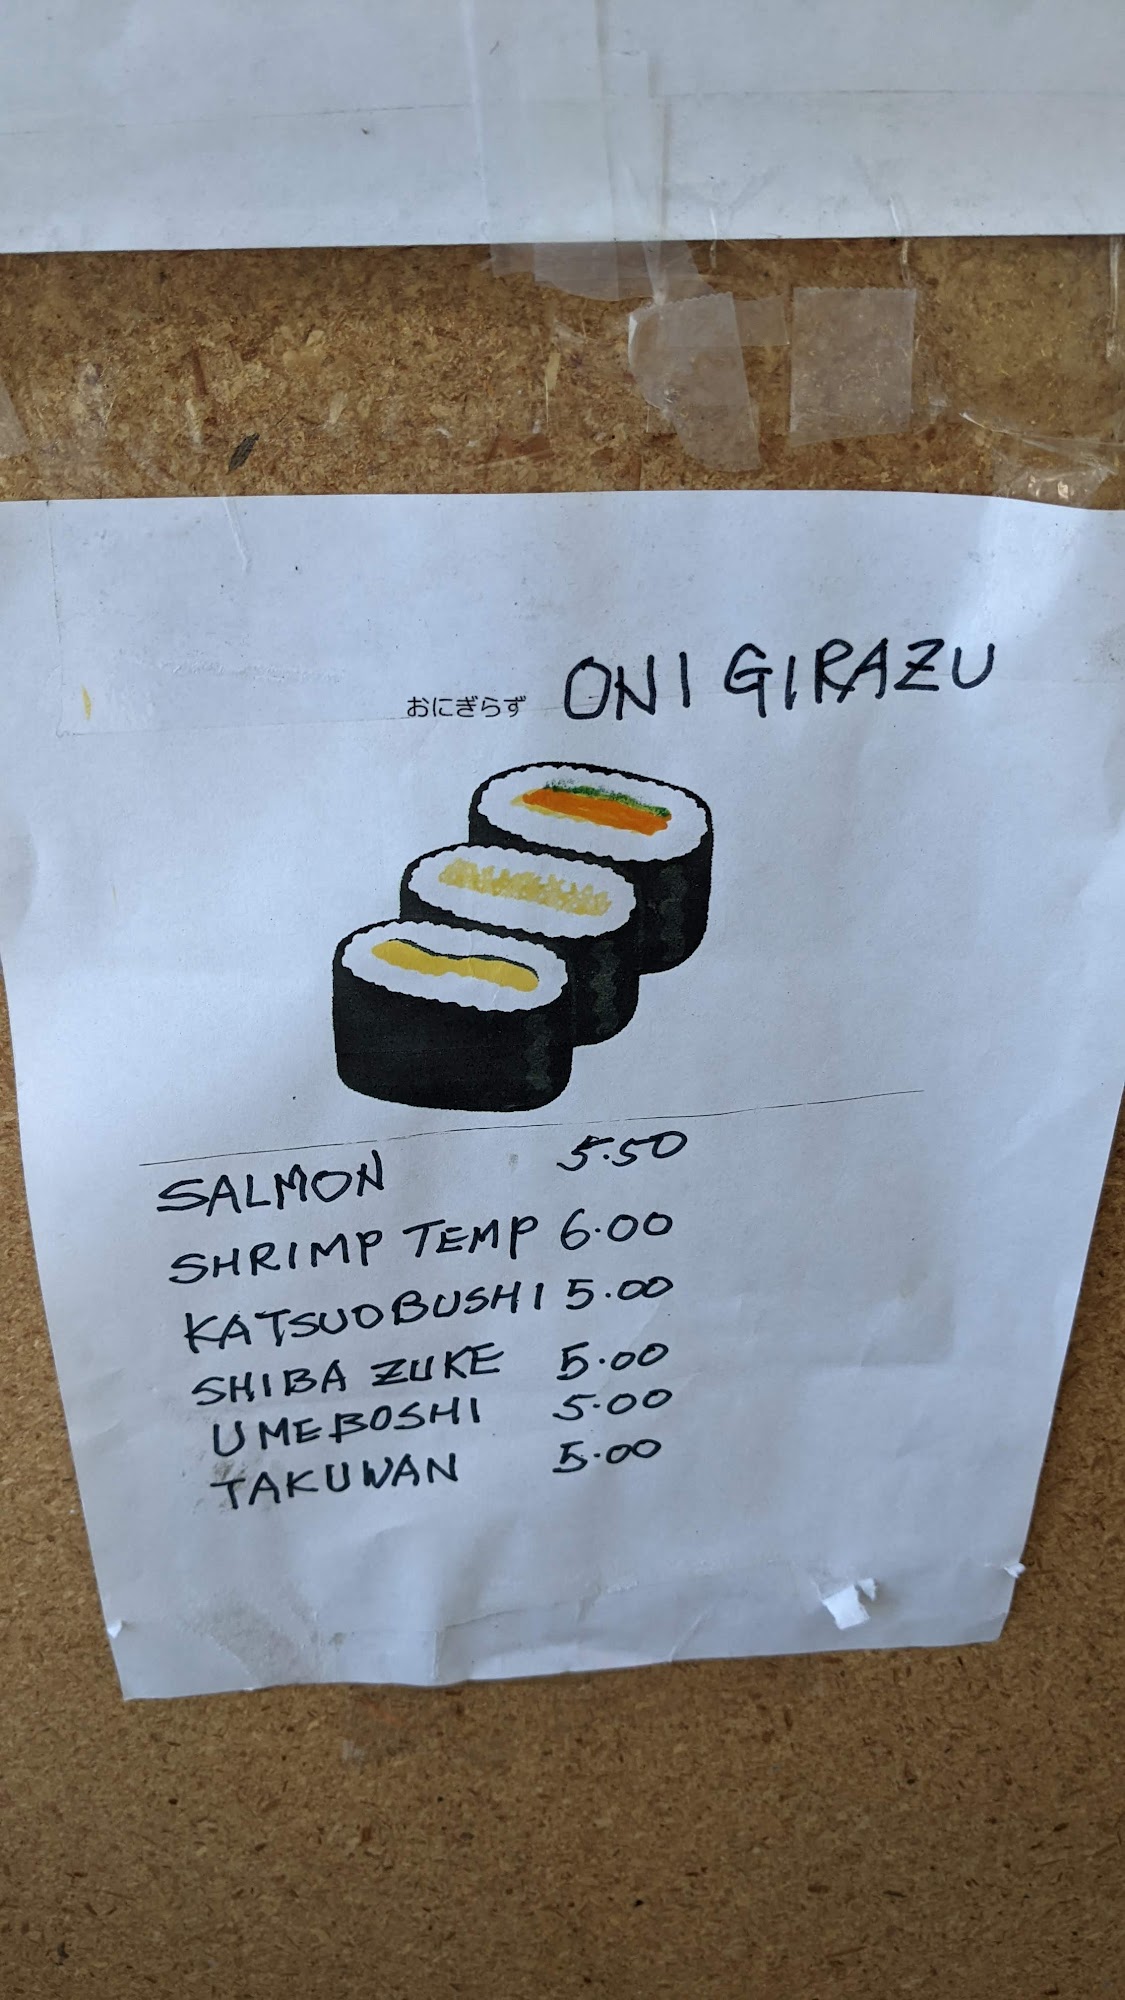 おにぎらず ONIGIRAZU
SALMON 5.50
SHRIMP TEMP 6.00
KATSUOBUSHI 5.00
SHIBA ZUKE 5.00
UMEBOSHI 5.00
TAKUWAN 5.00